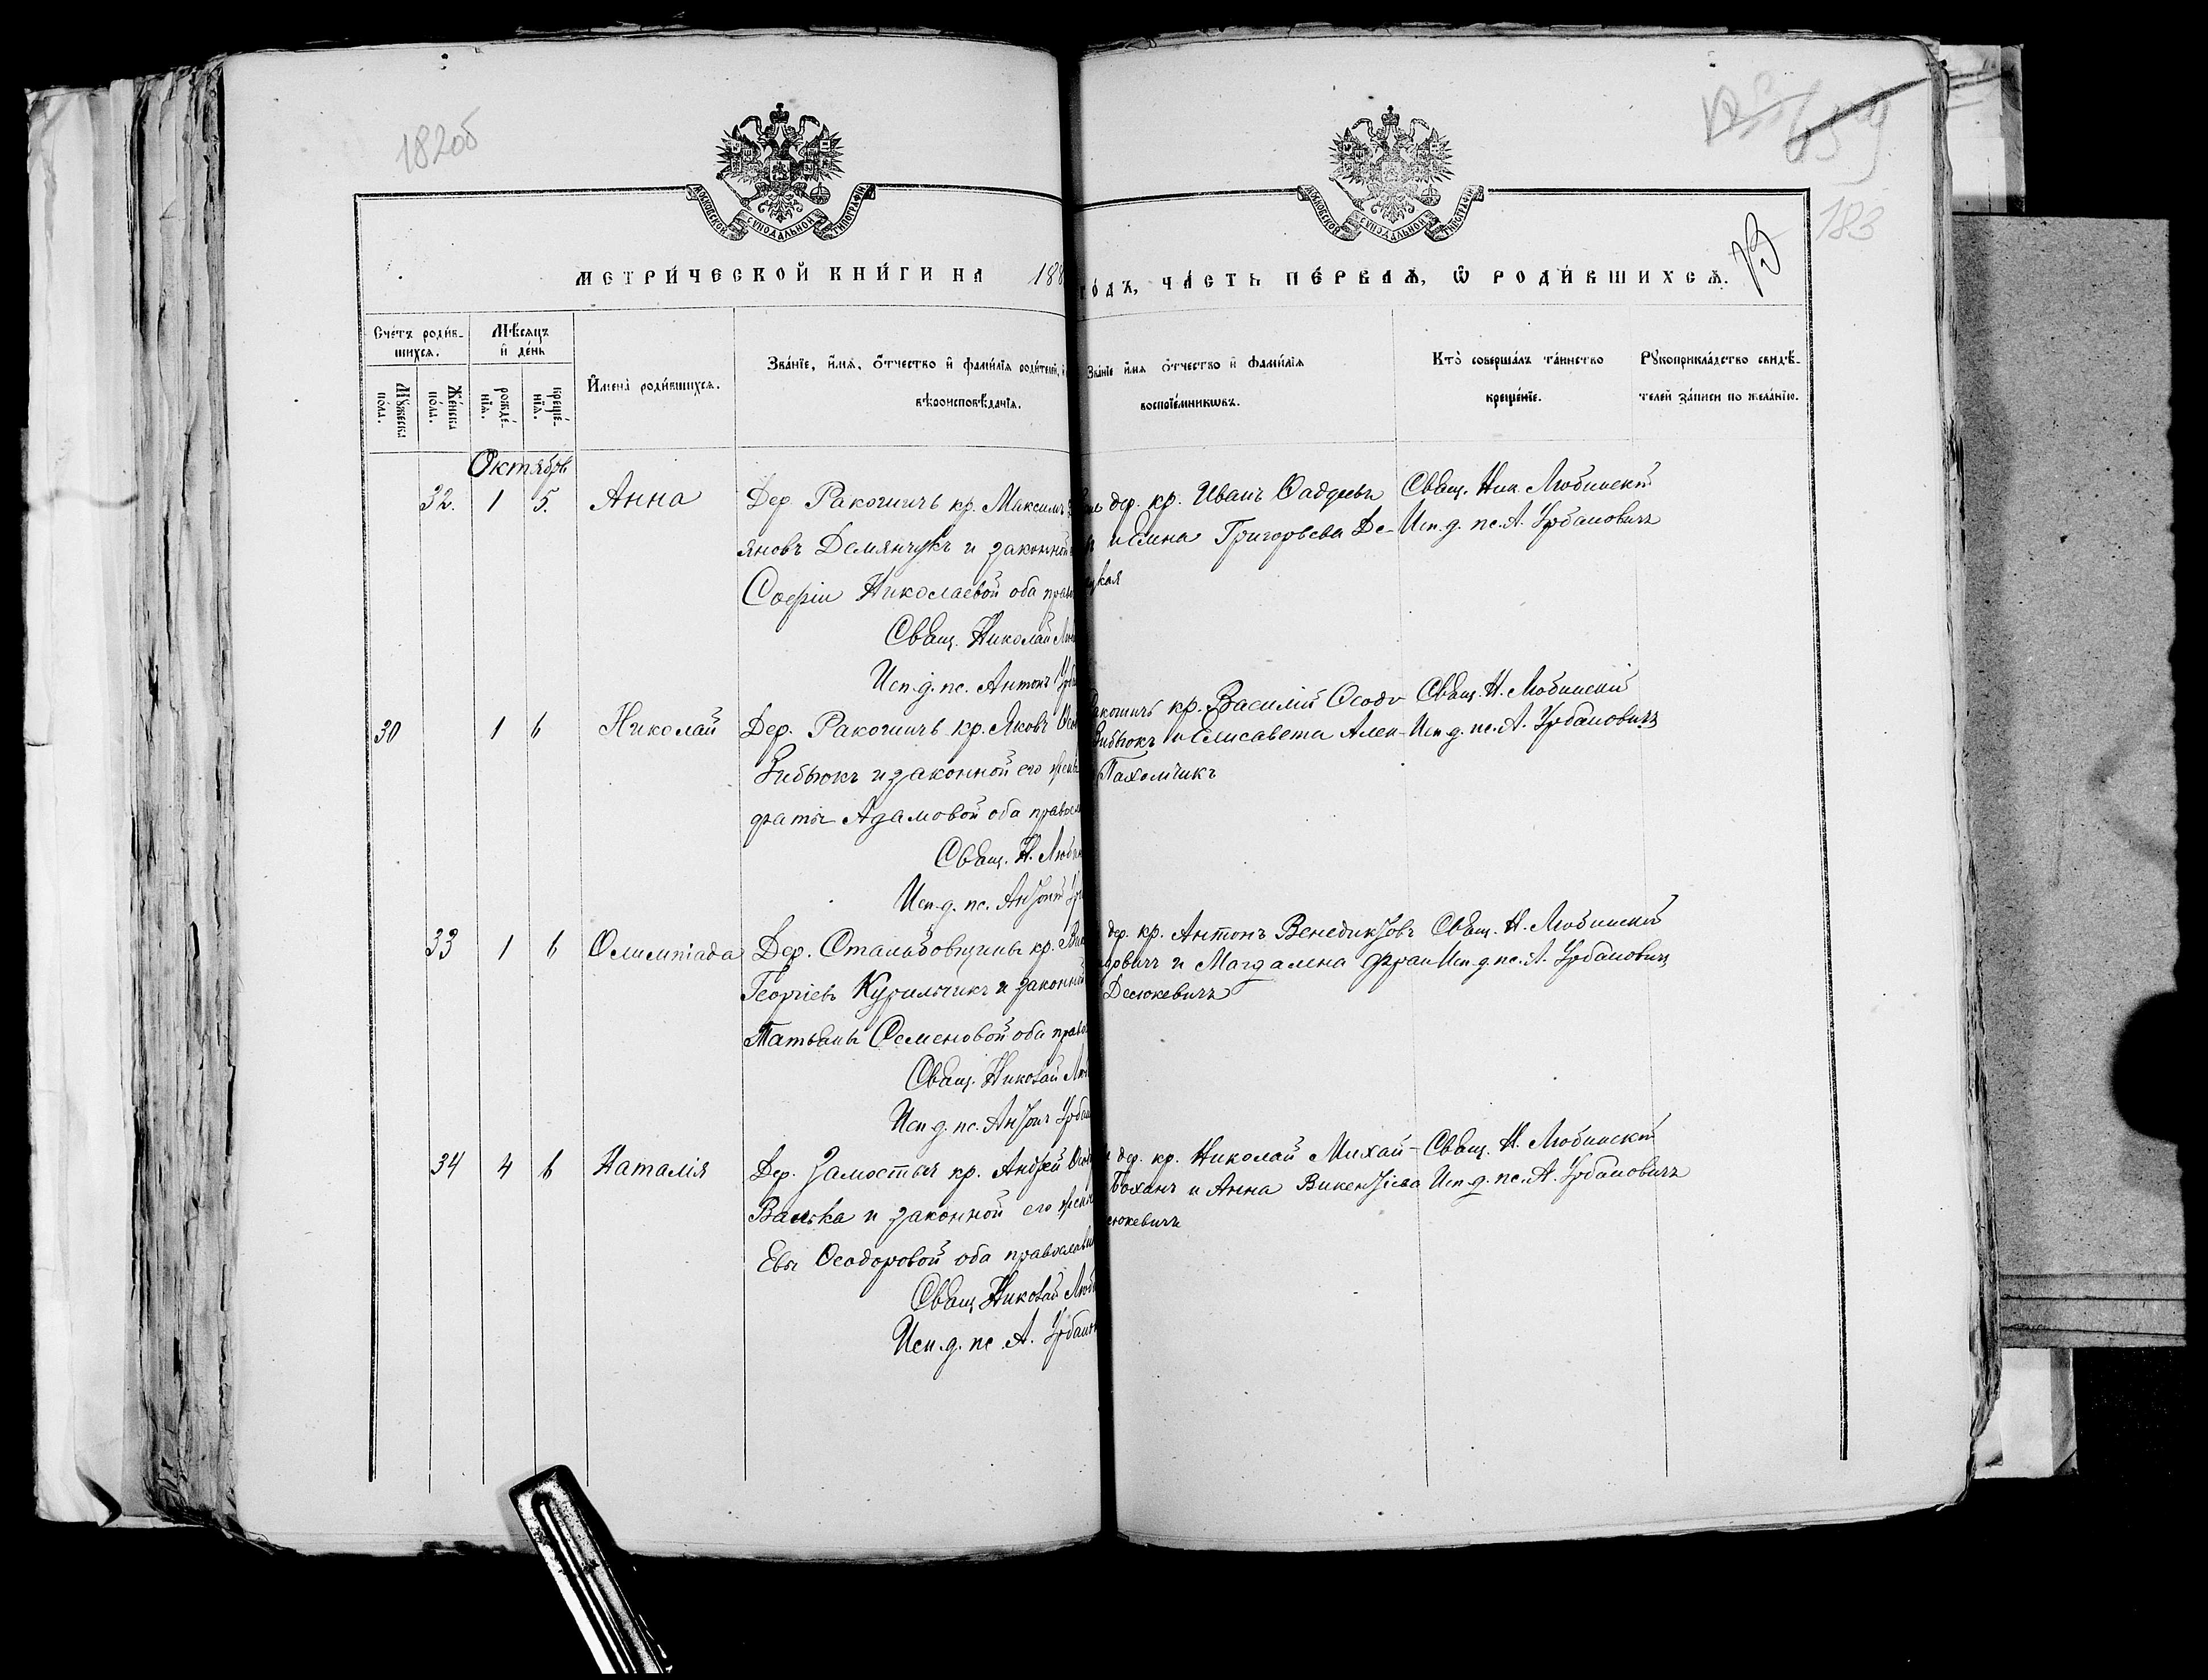 182об
183
МОСКОВСКОЙ СѴНОДАЛЬНОЙ ТИПОГРАФІИ
МОСКОВСКОЙ СѴНОДАЛЬНОЙ ТИПОГРАФІИ
МЕТРИ́ЧЕСКОЙ КНИ́ГИ НА 188
ГО́ДЪ, ЧА́СТЬ ПЕ́РВАѦ, Ѽ РОДИ́ВШИХСѦ.
Сче́тъ роди́в-
шихсѧ.
Мꙋ́жеска
по́ла.
Же́нска
по́ла.
Мѣ́сѧцъ
и҆ де́нь
рожде́-
нїѧ.
креще́-
нїѧ.
И҆мена̀ роди́вшихсѧ.
Зва́нїе, и҆́мѧ, ѻ҆́тчество и҆ фами́лїѧ роди́телей,
вѣроисповѣ́данїѧ.
Зва́нїе и҆́мѧ ѻ҆́тчество и҆ фами́лїѧ
воспрїе́мникѡвъ.
Кто̀ соверша́лъ та́инство
креще́нїе.
Рꙋкоприкла́дство свидѣ́-
телей за́писи по жела́нїю.
Октябрь
32. 1 5. Анна
Дер. Ракогичъ кр. Максимъ
яновъ Демянчукъ и законной
Софіи Николаевой оба прав
Свящ. Николай Лю
Исп. д. пс. Антонъ Урб
дер. кр. Иванъ Фаддеевъ
и Елена Григорьева Де-
цкая
Свящ. Ник. Любинскій
Исп. д. пс. А. Урбановичъ
30 1 6 Николай
Дер. Ракогичъ кр. Яковъ
Зибюкъ и законной его
фаты Адамовой оба правосл
Свящ. Н. Любин
Исп. д. пс. Антонъ Ур
акогичъ кр. Василій Ѳеодо
Зибюкъ и Елисавета Алек-
Пахомчикъ
Свящ. Н. Любинскій
Исп. д. пс. А. Урбановичъ
33 1 6 Олимпіада
Дер. Стальбовщины кр.
Георгіевъ Курильчикъ и законной
Татьаны Семеновой оба прав
Свящ. Николай Лю
Исп. д. пс. Антонъ Урбан
дер. кр. Антонъ Венедиктовъ
довичъ и Магдалена Фран
Десюкевичъ
Свящ. Н. Любинскій
Исп. д. пс. А. Урбановичъ
34 4 6 Наталія
Дер. Замостья кр. Андрей
Валька и законной его
Евы Ѳеодоровой оба православн
Свящ Николай Люб
Исп. д. пс А. Урбанов
дер. кр. Николай Михай-
Боханъ и Анна Викентіева
сюкевичъ
Свящ. Н. Любинскій
Исп. д. пс. А. Урбановичъ